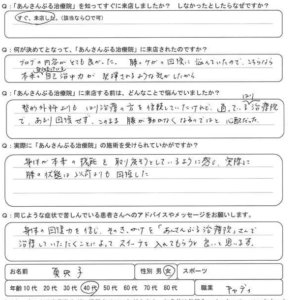 Q:「あんさんぶる治療院」を知ってすぐに来店しましたか? しなかったとしたらならぜですか?
すぐ、来店した。(該当なら〇で可)
Q:何が決めてとなって、「あんさんぶる治療院」に来店されたのですか?
ブログの内容がとても良かった。膝のケガの回復に悩んでいたので、こちらなら
本来の自己治癒力が発揮されるような気がしたから
Q:「あんさんぶる治療院」に来店する前は、どんなことで悩んでいましたか?
整形外科よりもはり治療の方を信頼していたけれど、通っている治療院
で、あまり回復せず、このまま膝が動かなくなるのではと心配だった。
Q:実際に「あんさんぶる治療院」の施術を受けられていかがですか?
身体が本来の機能を取り戻そうとしているように感じ、実際に
膝の状態は以前よりも回復した
Q:同じような症状で苦しんでいる患者さんへのアドバイスやメッセージをお願いします。
身体の回復力を信じ、そのきっかけを「あんさんぶる治療院」さんで
治療していただくことによって、スイッチを入れてもらうと良いと思います。
お名前 性別 男・女 スポーツ
年齢 10代 20代 30代 40代 50代 60代 70代 80代 職業 キャディ